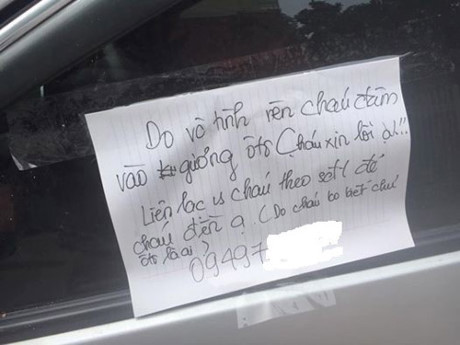 Do vô tình nên cháu đâm
vào gương ôtô (cháu xin lỗi ạ!!!
Liên lạc vs cháu theo số đt để
cháu đền ạ. (Do cháu ko biết chủ
ôtô là ai)
09497